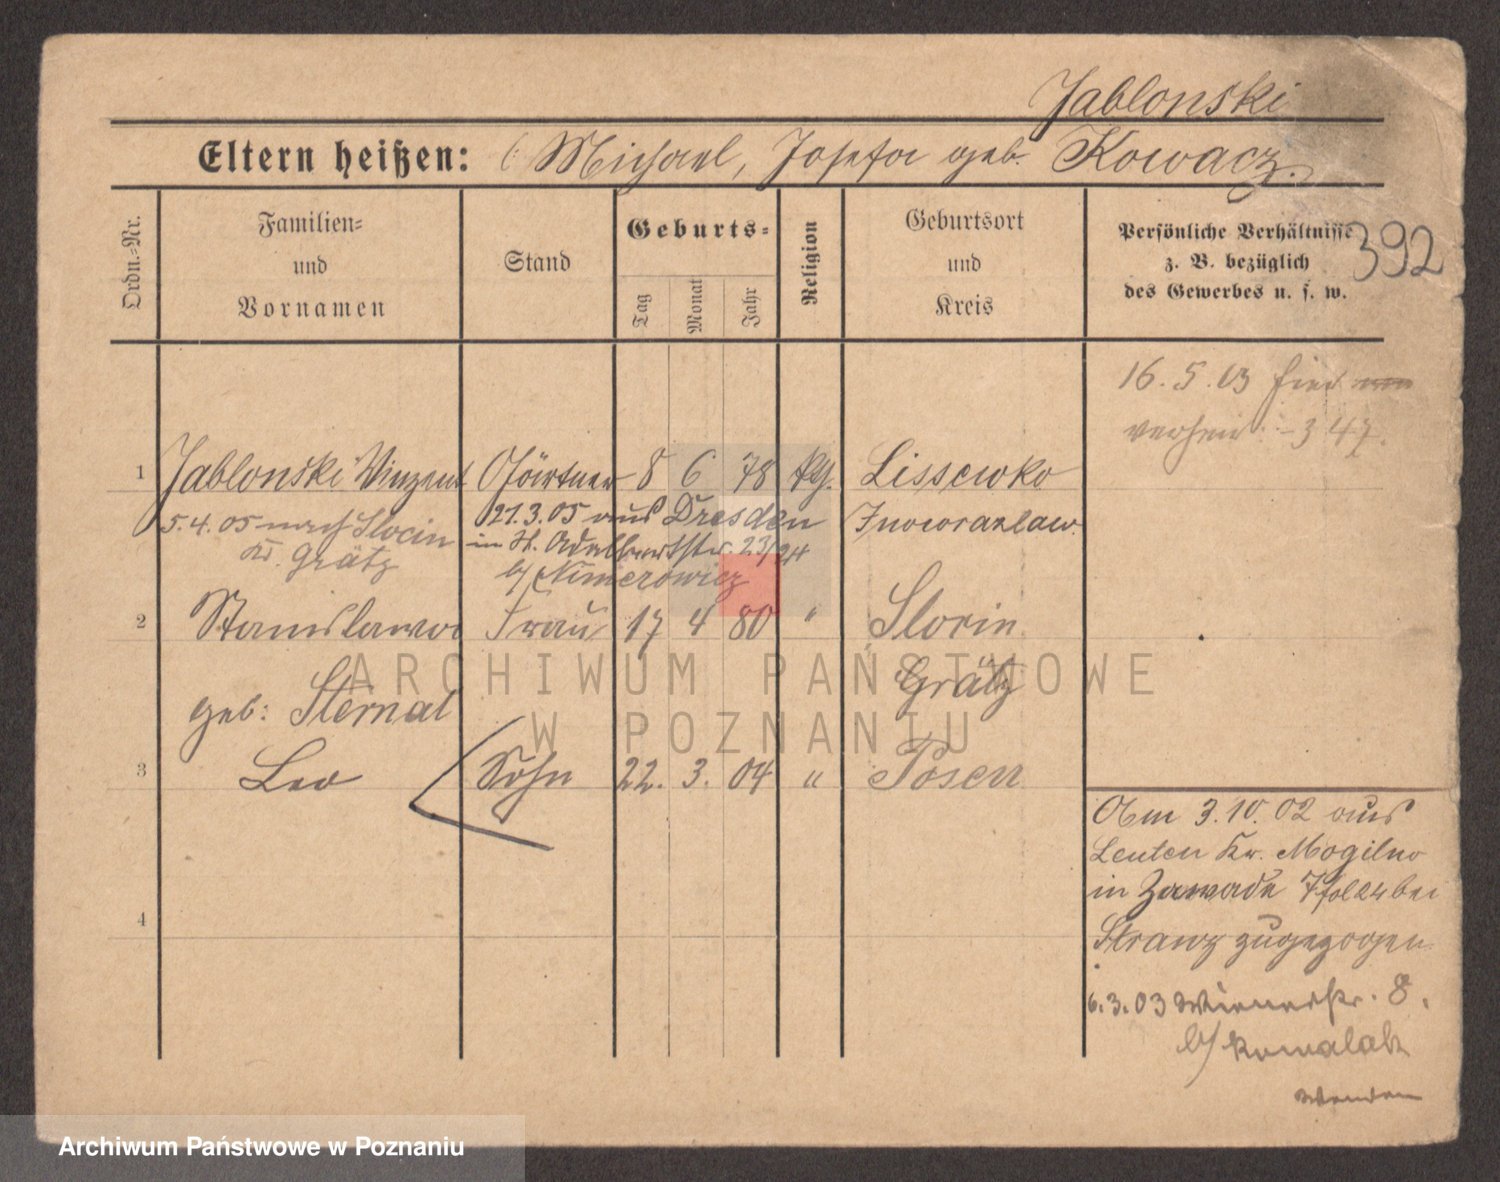 Jablonski
Eltern heißen: Michael, Josefa geb. Kowacz.
Ordn.-Nr.
Familien-
und
Vornamen
Stand
Geburts-
Tag
Monat
Jahr
Religion
Geburtsort
und
Kreis
Persönliche Verhältnisse
z. B. bezüglich
des Gewerbes u. s. w.
392
16. 5. 03 hier
verheir. 347.
1 Jablonski Vinzent Gärtner 8 6 78 kth. Lissewko
5.4.05 nach Slocin 21.3.05 aus Dresden Inowrazlaw
Kr. Grätz in St. Adalbertstr. 23/24
b/ Nimerowicz
2 Stanislawa Frau 17 4 80 " Slocin
geb: Sternal Grätz
3 Leo Sohn 22. 3. 04 " Posen
4
Am 3.10.02 aus
Leuten Kr. Mogilno
in Zawade 7 fol 24 bei
Strauz zugezogen
6.3.03 Wienerstr. 8.
b/ Kowalak
Wenden
ARCHIWUM PAŃSTWOWE
W POZNANIU
Archiwum Państwowe w Poznaniu